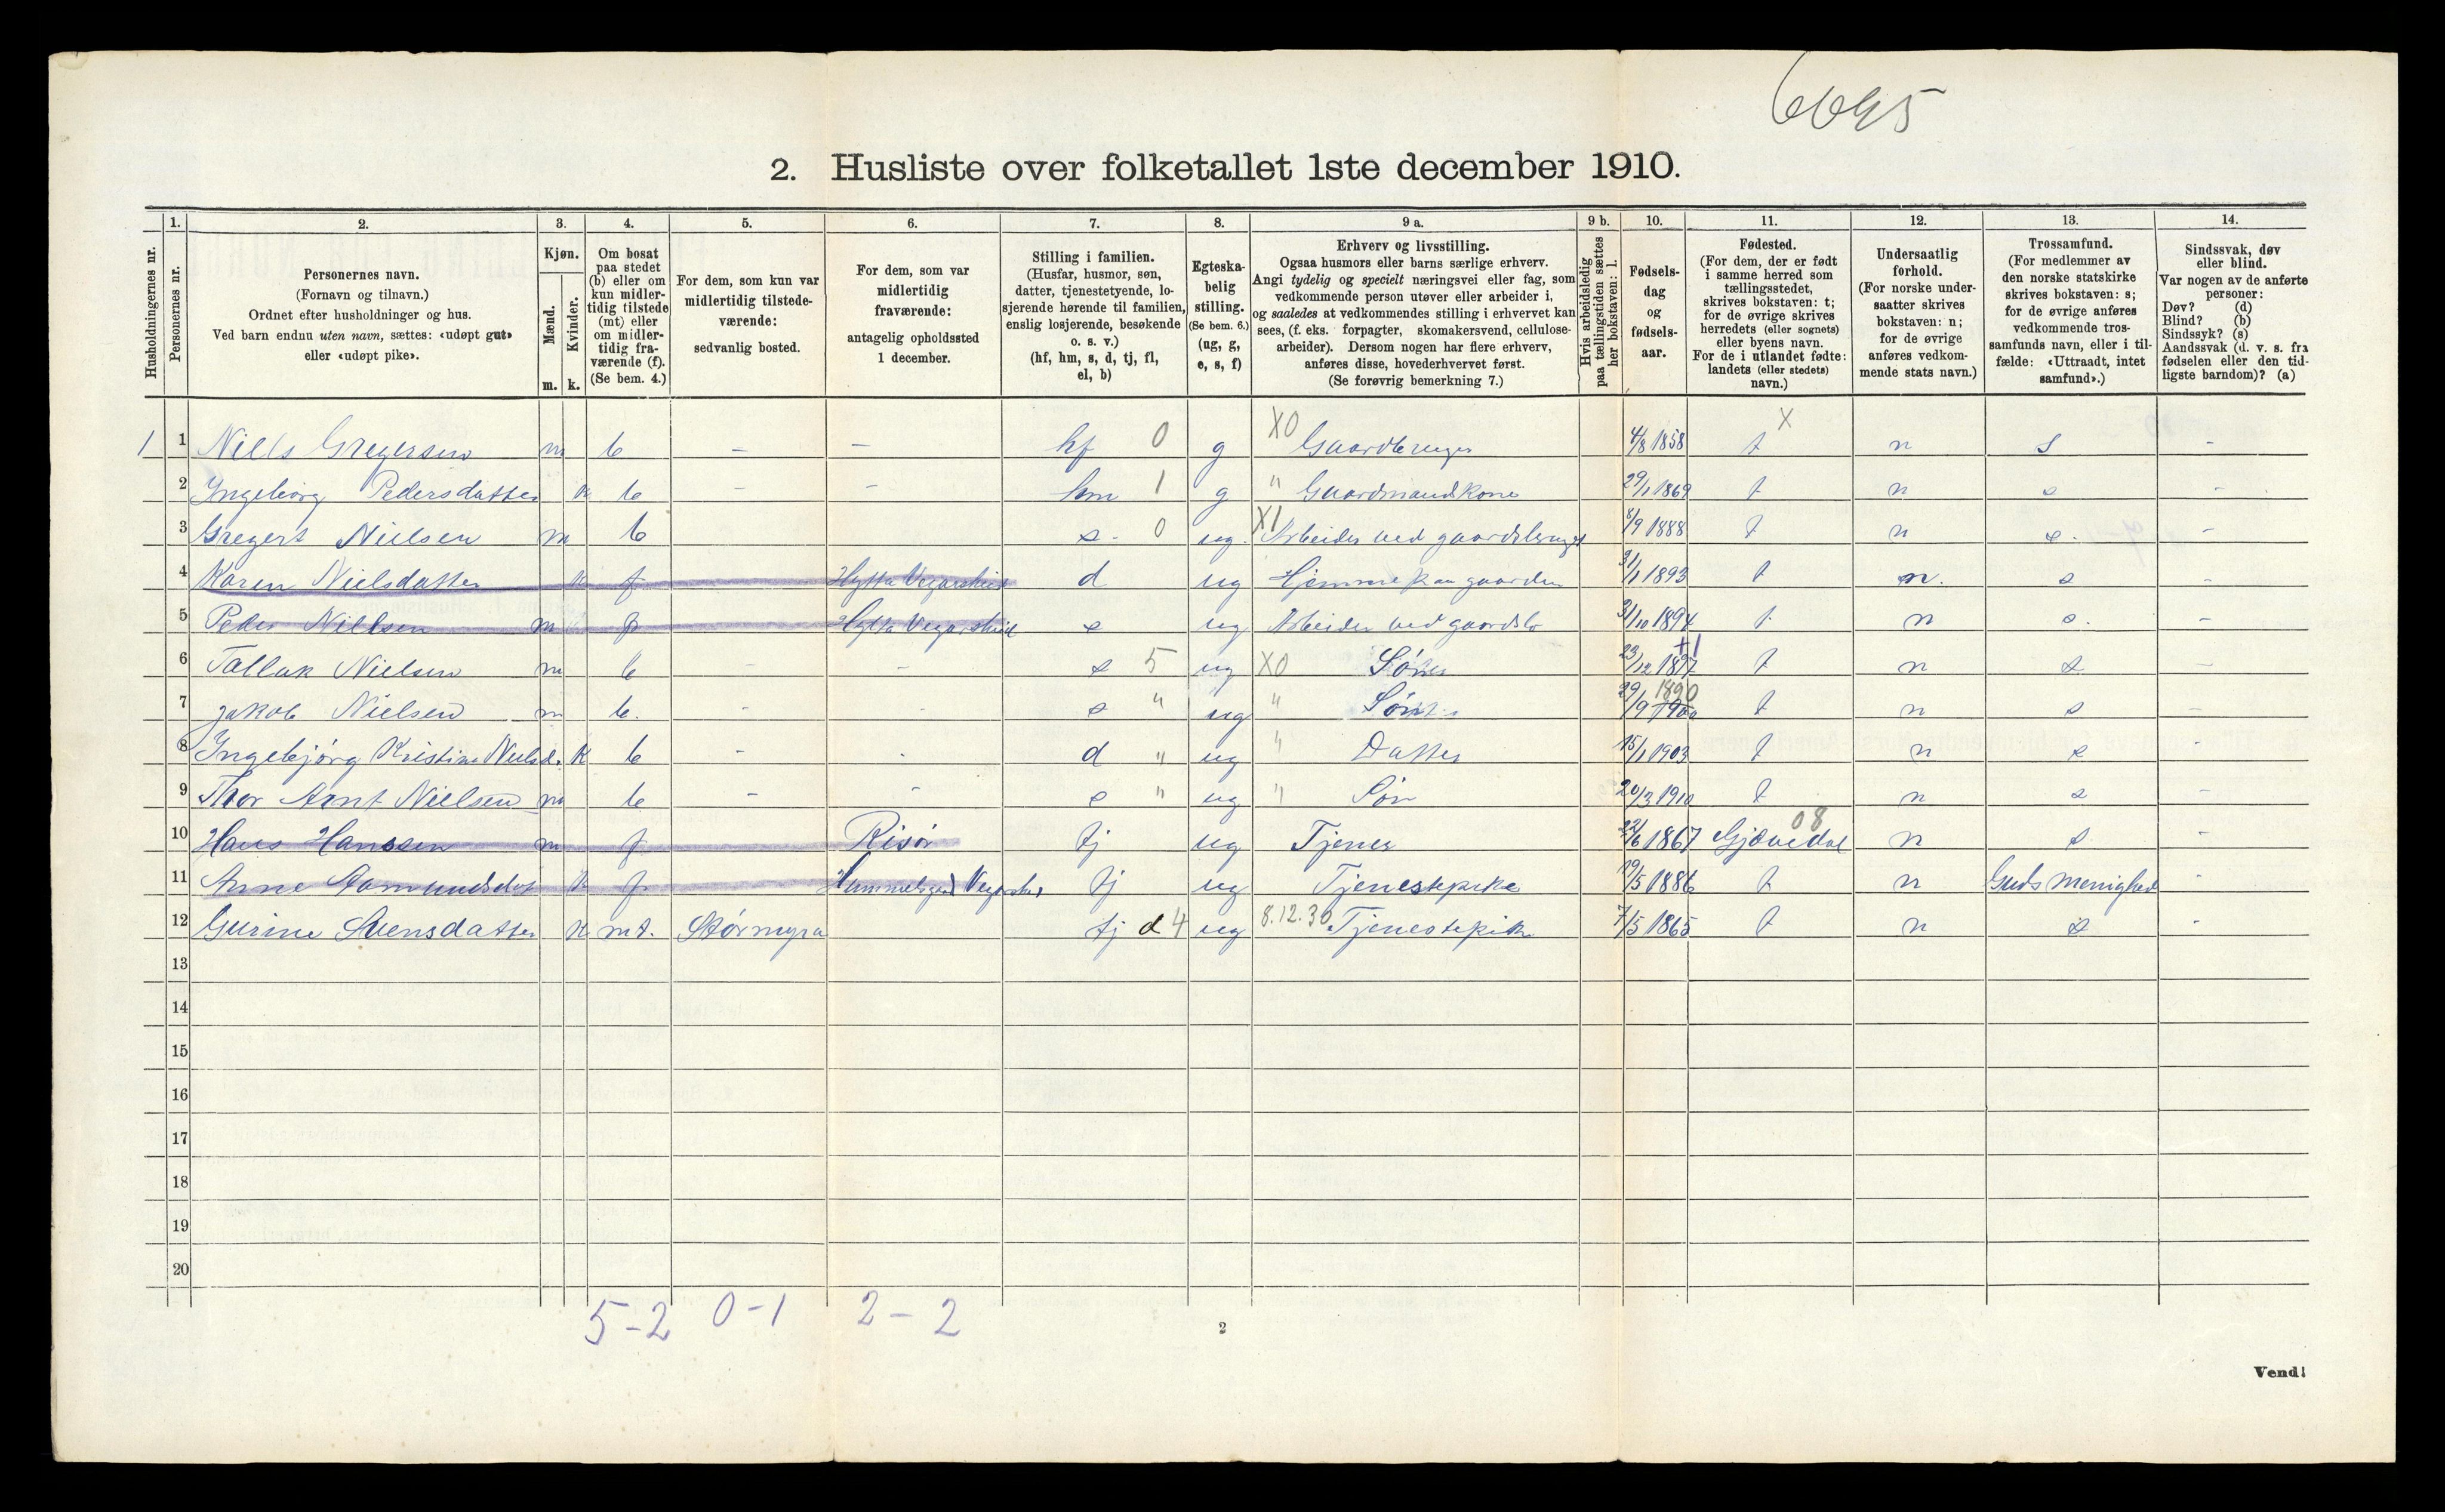 6695
2. Husliste over folketallet 1ste december 1910.
Husholdningernes nr.
1.
Personernes nr.
2.
Personernes navn.
(Fornavn og tilnavn.)
Ordnet efter husholdninger og hus.
Ved barn endnu uten navn, sættes: «udøpt gut»
eller «udøpt pike».
3.
Kjøn.
Mænd.
Kvinder.
m. k.
4.
Om bosat
paa stedet
(b) eller om
kun midler-
tidig tilstede
(mt) eller
om midler-
tidig fra-
værende (f).
(Se bem. 4.)
5.
For dem, som kun var
midlertidig tilstede-
værende:
sedvanlig bosted.
6.
For dem, som var
midlertidig
fraværende:
antagelig opholdssted
1 december.
7.
Stilling i familien.
(Husfar, husmor, søn,
datter, tjenestetyende, lo-
sjerende hørende til familien,
enslig losjerende, besøkende
o. s. v.)
(hf, hm, s, d, tj, fl,
el, b)
8.
Egteska-
belig
stilling.
(Se bem. 6.)
(ug, g,
e, s, f)
9 a.
Erhverv og livsstilling.
Ogsaa husmors eller barns særlige erhverv.
Angi tydelig og specielt næringsvei eller fag, som
vedkommende person utøver eller arbeider i,
og saaledes at vedkommendes stilling i erhvervet kan
sees, (f. eks. forpagter, skomakersvend, cellulose-
arbeider). Dersom nogen har flere erhverv,
anføres disse, hovederhvervet først.
(Se forøvrig bemerkning 7.)
9 b.
Hvis arbeidsledig
paa tællingstiden sættes
her bokstaven: l.
10.
Fødsels-
dag
og
fødsels-
aar.
11.
Fødested.
(For dem, der er født
i samme herred som
tællingsstedet,
skrives bokstaven: t;
for de øvrige skrives
herredets (eller sognets)
eller byens navn.
For de i utlandet fødte:
landets (eller stedets)
navn.)
12.
Undersaatlig
forhold.
(For norske under-
saatter skrives
bokstaven: n;
for de øvrige
anføres vedkom-
mende stats navn.)
13.
Trossamfund.
(For medlemmer av
den norske statskirke
skrives bokstaven: s;
for de øvrige anføres
vedkommende tros-
samfunds navn, eller i til-
fælde: «Uttraadt, intet
samfund».)
14.
Sindssvak, døv
eller blind.
Var nogen av de anførte
personer:
Døv? (d)
Blind? (b)
Sindssyk? (s)
Aandssvak (d. v. s. fra
fødselen eller den tid-
ligste barndom)? (a)
1 1 Niels Gregersen m b - - hf 0 g X0 Gaardbruger 4/8 1858 t X n s -
2 Ingeborg Pedersdatter k b - - hm 1 g " Gaardmandskone 29/1 1869 t n s -
3 Gregert Nielsen m b s. 0 ug. X1 Arbeider ved gaardsbruget 8/9 1888 t n s. -
4 Karen Nielsdatter k f Hytta Vegarsheid d ug Hjemme paa gaarden 31/1 1893 t n. s -
5 Peder Nielsen m f Hytta Vegarsheid s ug Arbeider ved gaardsb 31/10 1894 t n s. -
6 Tallak Nielsen m b - - s 5 ug X0 Søn 23/12 1897 +1 t n s -
7 Jakob Nielsen m b. - - s " ug " Søn 29/9 1900 1890 t n s -
8 Ingebjørg Kristine Nielsd. k b - - d " ug " Datter 15/1 1903 t n s -
9 Thor Arnt Nielsen m b - - s " ug " Søn 20/3 1910 t n s -
10 Hans Hanssen m f Risør tj ug Tjener 22/6 1867 Gjøvedal 08 n s. -
11 Anne Aamundsdat k f tj ug Tjenestepike 19/5 1886 t n Guds Menighed -
12 Gurine Svensdatter k mt. Størmyra tj d 4 ug 8.12.30 Tjenestepik 7/5 1865 t n s -
13
14
15
16
17
18
19
20
5-2 0-1 2-2
2
Vend!